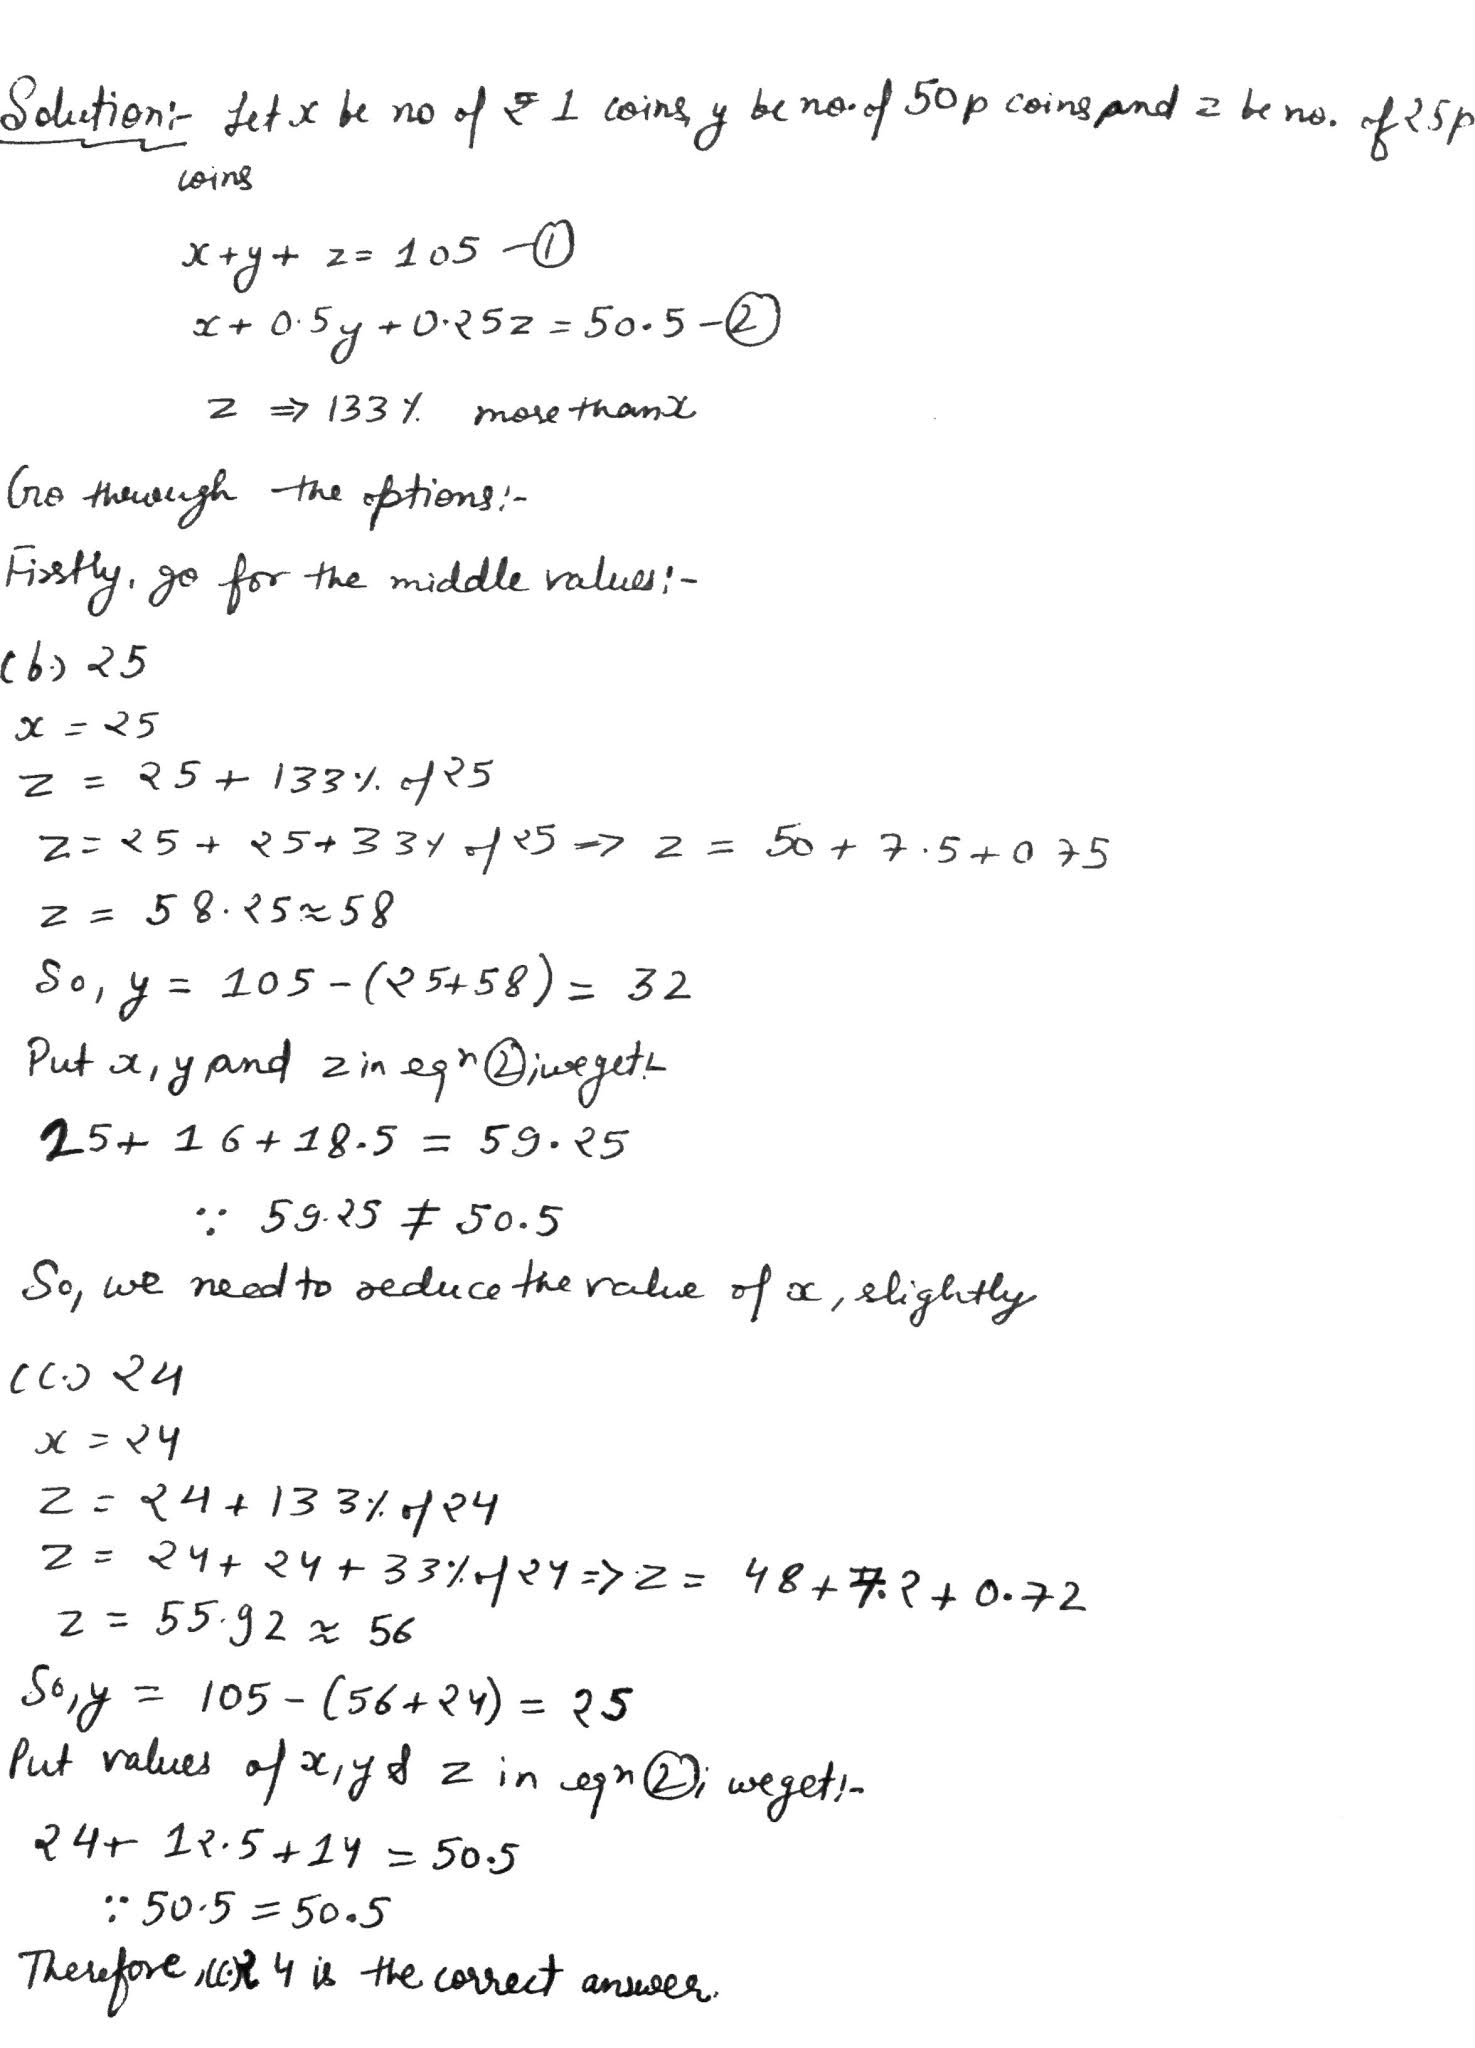 Solution:- Let x be no of ₹ 1 coins, y be no. of 50p coins and z be no. of 25p
coins
x+y+ z= 105 -①
x+ 0.5y +0.25z = 50.5 -②
z ⇒ 133% more than x
Go through the options:-
Firstly, go for the middle values:-
(b.) 25
x = 25
z = 25+ 133% of 25
z= 25+ 25+33% of 25 => z = 50+ 7.5+0 75
z = 58.25≈58
So, y = 105-(25+58)= 32
Put x, y and z in eqn②; we get:-
25+ 16+18.5 = 59.25
∵ 59.25 ≠ 50.5
So, we need to reduce the value of x, slightly
(C.) 24
x = 24
z = 24+133% of 24
z = 24+ 24+33% of 24 => z = 48+7.2+0.72
z = 55.92 ≈ 56
So, y = 105-(56+24) = 25
Put values of x, y & z in eqn②; we get:-
24+ 12.5+14 = 50.5
∵ 50.5 = 50.5
Therefore, (C.) 24 is the correct answer.